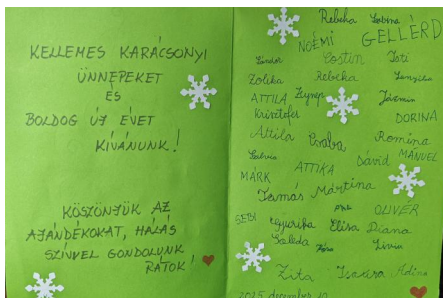 KELLEMES KARÁCSONYI
ÜNNEPEKET
ÉS
BOLDOG ÚJ ÉVET
KÍVÁNUNK!
KÖSZÖNJÜK AZ
AJÁNDÉKOKAT, HÁLÁS
SZÍVVEL GONDOLUNK
RÁTOK!
Rebeka Sabina
NOÉMI GELLÉRD
Sándor Costin Joti
Zolika Rebeka
ATTILA Zeynep Jázmin
Krisztofer DORINA
Attila Csaba Romina
ATTIKA Dávid MANUEL
MÁRK
Tamás Mártina
OLIVER
SEBI Elisa Diana
Lívia
Zita Adina
2025 december 10